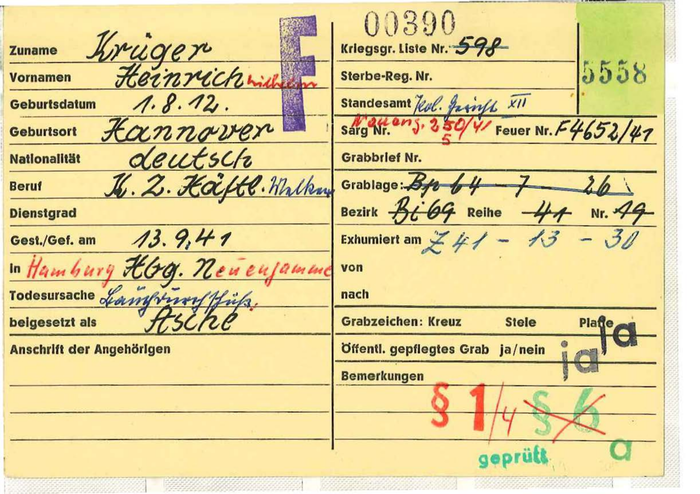 Zuname Krüger
Vornamen Heinrich Wilhelm
Geburtsdatum 1.8.12.
Geburtsort Hannover
Nationalität deutsch
Beruf K.Z. Häftl.
Dienstgrad
Gest./Gef. am 13.9.41
in Hamburg Hbg. Neuengamme
Todesursache Bauchdurchschuß.
beigesetzt als Asche
Anschrift der Angehörigen
F
00390
5558
Kriegsgr. Liste Nr. 598
Sterbe-Reg. Nr.
Standesamt Pol. Gericht XII
Neueng. 250/41
5
Sarg Nr. Feuer Nr. F4652/41
Grabbrief Nr.
Grablage: Bp 64 - 7 - 26
Bezirk Bi 69 Reihe 41 Nr. 19
Exhumiert am Z 41 - 13 - 30
von
nach
Grabzeichen: Kreuz Stele Platte ja
Öffentl. gepflegtes Grab ja/nein ja
Bemerkungen
§ 1/4 § 6
geprüft a